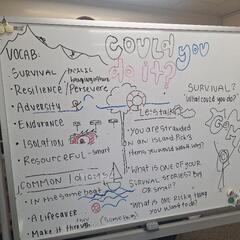 Could you
do it?
VOCAB:
• SURVIVAL
• Resilience / Persevere
• Adversity
• Endurance
• Isolation
• Resourceful - smart
Common Idioms
• In the same boat
• A Lifesaver
• Make it through
Let's talk
• You are stranded
on an island. Pick 3
items you would want. Why?
• What is one of your
survival stories? Big
or small?
• What is one risky thing
you want to do?
SURVIVAL?
What could you do?